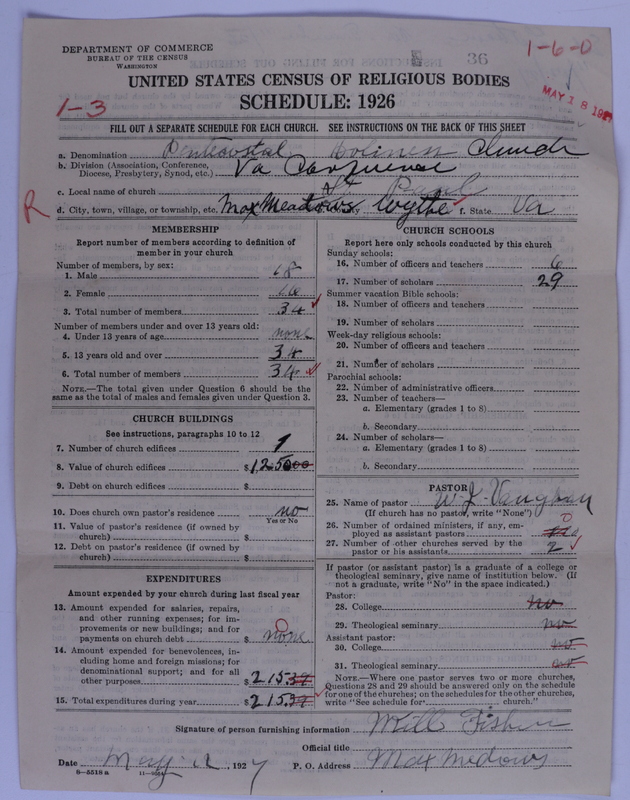 36
1-6-0
DEPARTMENT OF COMMERCE
BUREAU OF THE CENSUS
WASHINGTON
UNITED STATES CENSUS OF RELIGIOUS BODIES
SCHEDULE: 1926
1-3
MAY 18 192
FILL OUT A SEPARATE SCHEDULE FOR EACH CHURCH. SEE INSTRUCTIONS ON THE BACK OF THIS SHEET
a. Denomination Pentecostal Holiness Church
b. Division (Association, Conference, Diocese, Presbytery, Synod, etc.) Va Conference
c. Local name of church Mt Pearl
R
d. City, town, village, or township, etc. Max Meadows Wythe f. State Va
MEMBERSHIP
Report number of members according to definition of
member in your church
Number of members, by sex:
1. Male 18
2. Female 16
3. Total number of members 34
Number of members under and over 13 years old:
4. Under 13 years of age none
5. 13 years old and over 34
6. Total number of members 34
NOTE.—The total given under Question 6 should be the
same as the total of males and females given under Question 3.
CHURCH BUILDINGS
See instructions, paragraphs 10 to 12
7. Number of church edifices 1
8. Value of church edifices $1,250 00
9. Debt on church edifices $
10. Does church own pastor's residence no
Yes or No
11. Value of pastor's residence (if owned by
church) $
12. Debt on pastor's residence (if owned by
church) $
EXPENDITURES
Amount expended by your church during last fiscal year
13. Amount expended for salaries, repairs,
and other running expenses; for im-
provements or new buildings; and for
payments on church debt $ none 0
14. Amount expended for benevolences, in-
cluding home and foreign missions; for
denominational support; and for all
other purposes $215.39
15. Total expenditures during year $215.39
CHURCH SCHOOLS
Report here only schools conducted by this church
Sunday schools:
16. Number of officers and teachers 6
17. Number of scholars 29
Summer vacation Bible schools:
18. Number of officers and teachers
19. Number of scholars
Week-day religious schools:
20. Number of officers and teachers
21. Number of scholars
Parochial schools:
22. Number of administrative officers
23. Number of teachers—
a. Elementary (grades 1 to 8)
b. Secondary
24. Number of scholars—
a. Elementary (grades 1 to 8)
b. Secondary
PASTOR
25. Name of pastor W. K. Vaughan
(If church has no pastor, write "None")
26. Number of ordained ministers, if any, em-
ployed as assistant pastors 0
27. Number of other churches served by the
pastor or his assistants 2
If pastor (or assistant pastor) is a graduate of a college or
theological seminary, give name of institution below. (If
not a graduate, write "No" in the space indicated.)
Pastor:
28. College no
29. Theological seminary no
Assistant pastor:
30. College no
31. Theological seminary no
NOTE.—Where one pastor serves two or more churches,
Questions 28 and 29 should be answered only on the schedule
for one of the churches; on the schedules for the other churches,
write "See schedule for church."
Signature of person furnishing information Will Fisher
Official title
Date May 12, 1927 P. O. Address Max Medows
8—5518 a